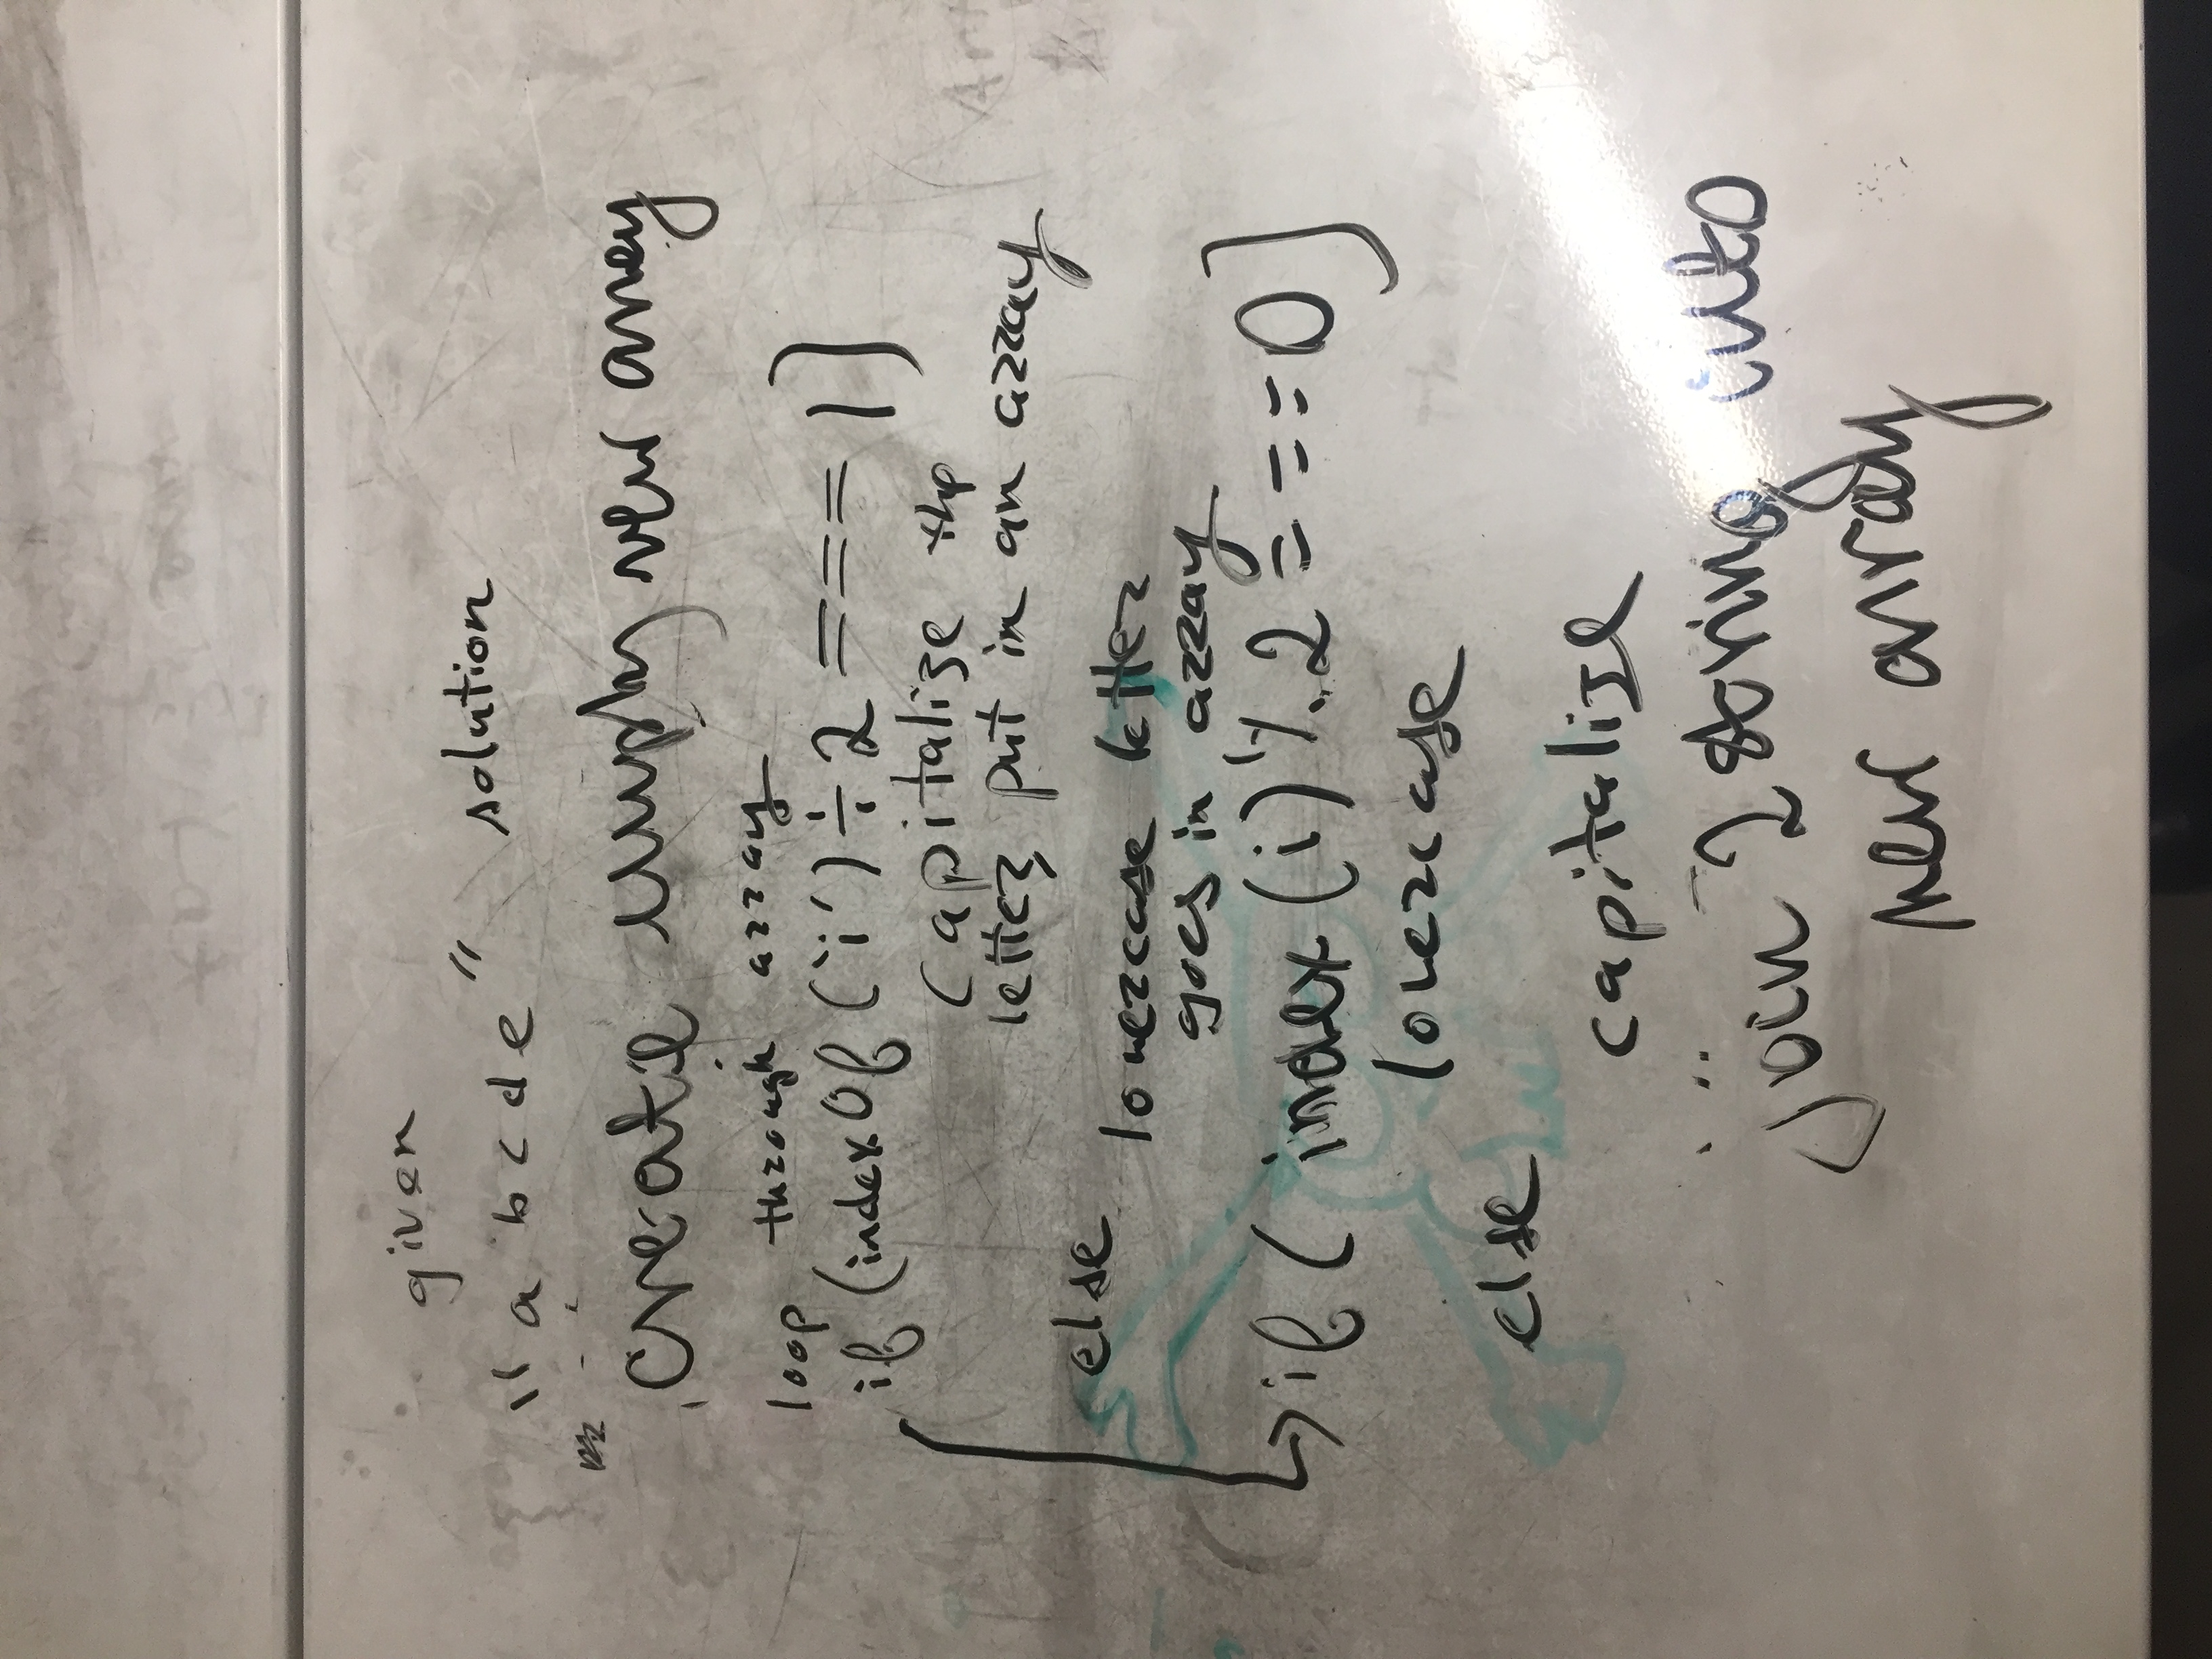 given
"a b c d e" solution
create empty new array
loop through array
if (indexOf ('i') ÷ 2 === 1)
capitalize the
letter, put in an array
else
lowercase letter
goes in array
if ( index (i) % 2 === 0)
lowercase
else
capitalize
join 2 string into
new array